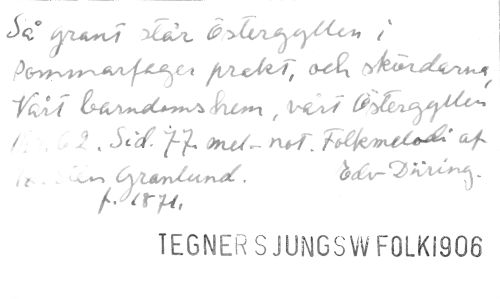 Så grant står Östergyllen i
sommarfager prakt, och skördarna,
Vårt barndomshem, vårt Östergyllen
62. Sid. 77. mel-not. Folkmelodi af
Granlund. Edv Düring.
f. 1871.
TEGNER S JUNGSW FOLK1906